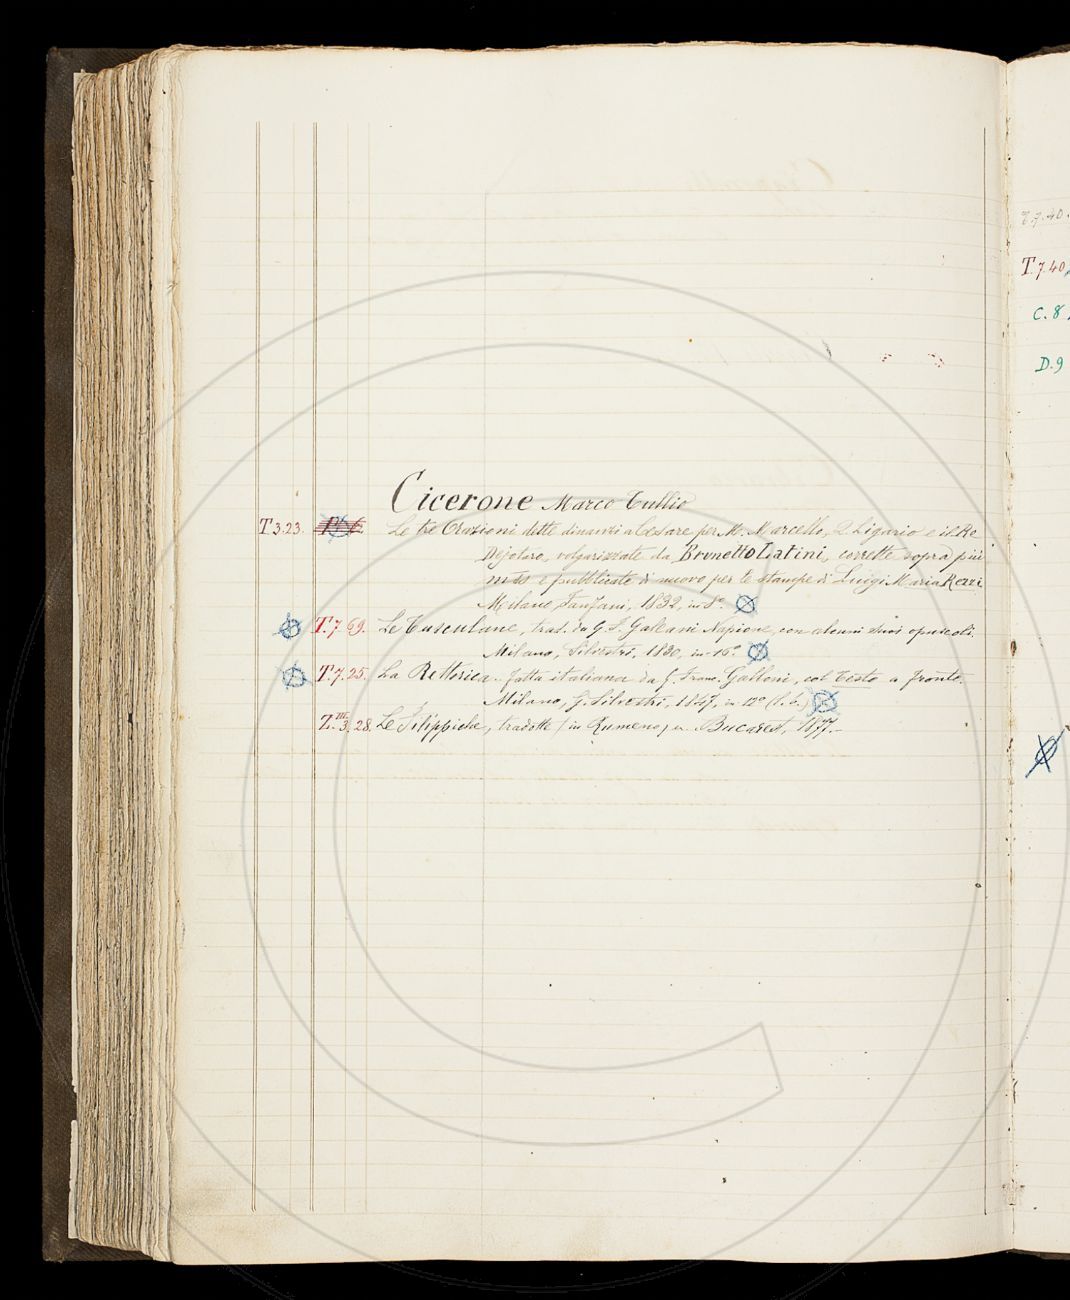 Cicerone Marco Tullio
T 3.23. Le tre Orazioni dette dinanzi a Cesare per M. Marcello, Q. Ligario e il Re
Dejotaro, volgarizzate da Brunetto Latini, corrette sopra più
mss e pubblicate di nuovo per le stampe di Luigi Maria Rezzi
Milano Fanfani, 1832, in 8°
T.7.69. Le Tusculane, trad. da G. F. Galeani Napione, con alcuni suoi opuscoli.
Milano, Silvestri, 1830, in-16°
T.7.25. La Rettorica fatta italiana da G. Franc. Galloni, col Testo a fronte.
Milano, G. Silvestri, 1847, in 12°
Z.III.3.28. Le Filippiche, tradotte (in Rumeno) Bucarest, 1877.
T.7.40.
T.7.40
C.8
D.9